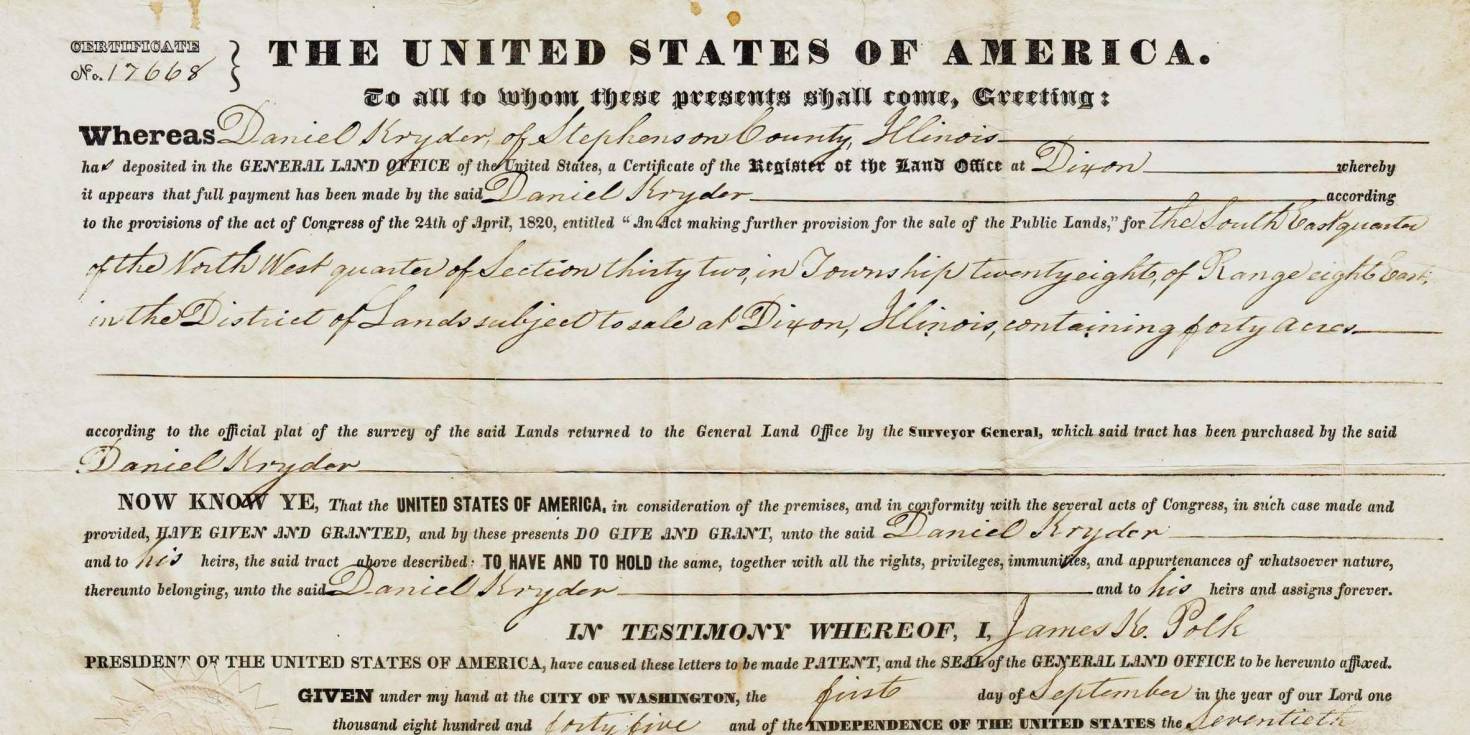 CERTIFICATE
No. 17668
THE UNITED STATES OF AMERICA.
To all to whom these presents shall come, Greeting:
Whereas Daniel Kryder, of Stephenson County, Illinois
has deposited in the GENERAL LAND OFFICE of the United States, a Certificate of the Register of the Land Office at Dixon whereby
it appears that full payment has been made by the said Daniel Kryder according
to the provisions of the act of Congress of the 24th of April, 1820, entitled "An Act making further provision for the sale of the Public Lands," for the South East quarter
of the North West quarter of Section thirty two, in Township twenty eight, of Range eight East,
in the District of Lands subject to sale at Dixon, Illinois, containing forty acres
according to the official plat of the survey of the said Lands returned to the General Land Office by the Surveyor General, which said tract has been purchased by the said
Daniel Kryder
NOW KNOW YE, That the UNITED STATES OF AMERICA, in consideration of the premises, and in conformity with the several acts of Congress, in such case made and
provided, HAVE GIVEN AND GRANTED, and by these presents DO GIVE AND GRANT, unto the said Daniel Kryder
and to his heirs, the said tract above described: TO HAVE AND TO HOLD the same, together with all the rights, privileges, immunities, and appurtenances of whatsoever nature,
thereunto belonging, unto the said Daniel Kryder and to his heirs and assigns forever.
IN TESTIMONY WHEREOF, I, James K. Polk
PRESIDENT OF THE UNITED STATES OF AMERICA, have caused these letters to be made PATENT, and the SEAL of the GENERAL LAND OFFICE to be hereunto affixed.
GIVEN under my hand at the CITY OF WASHINGTON, the first day of September in the year of our Lord one
thousand eight hundred and forty five and of the INDEPENDENCE OF THE UNITED STATES the Seventieth